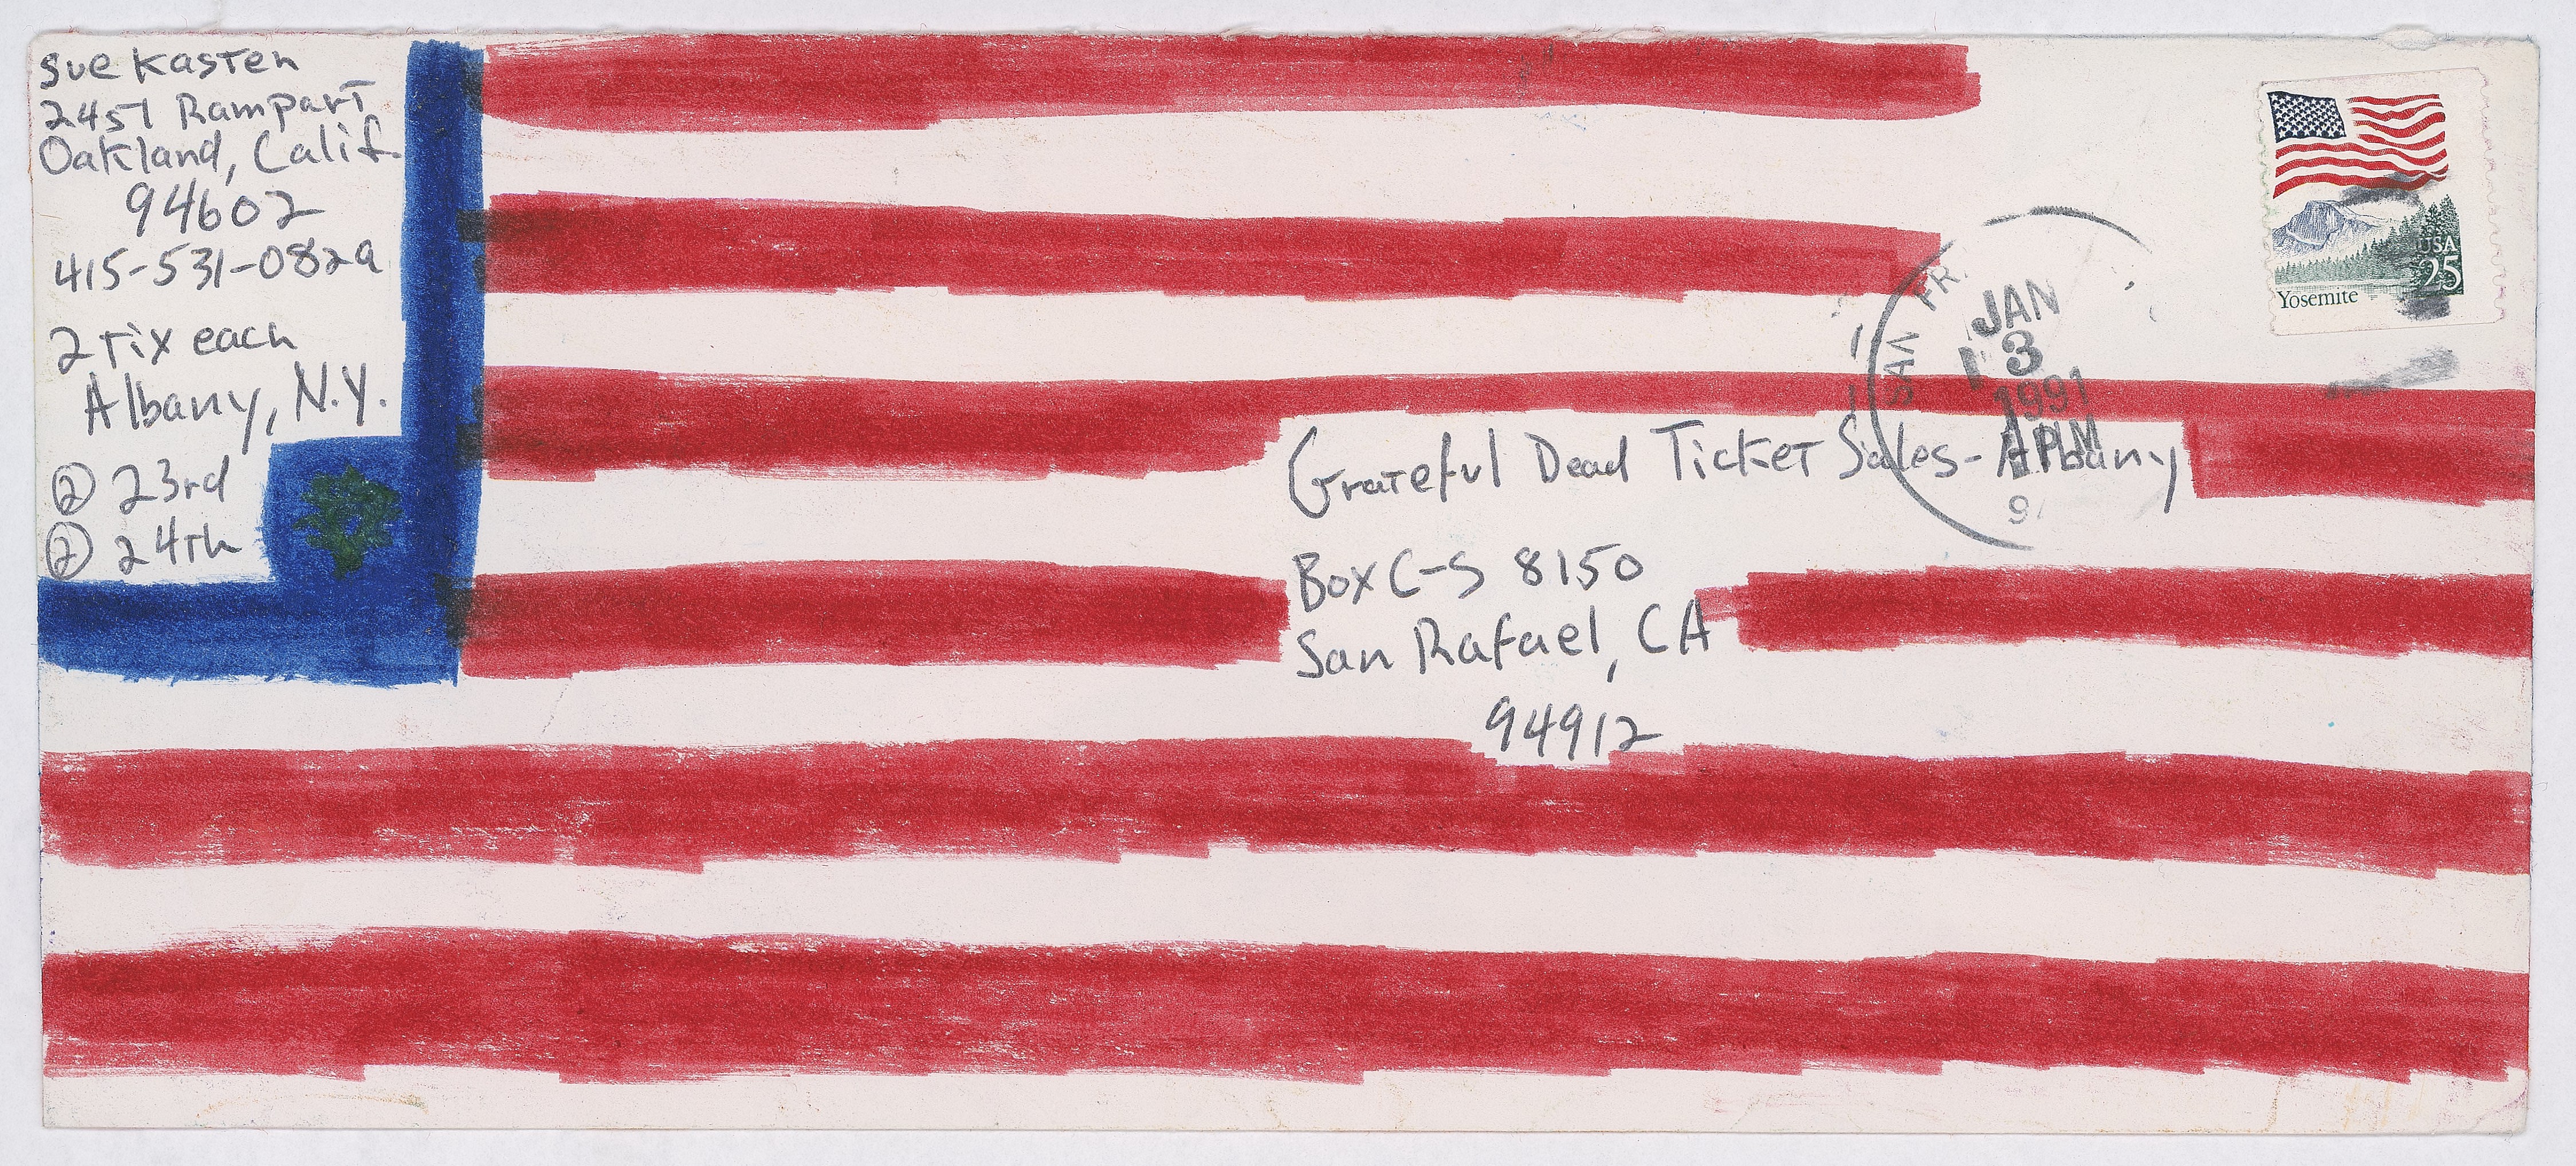 Sue Kasten
2457 Rampart
Oakland, Calif.
94602
415-531-0829
2 Tix each
Albany, N.Y.
② 23rd
② 24Th
USA
25
Yosemite
SAN FR
JAN
3
1991
PM
Grateful Dead Ticket Sales-Albany
Box C-S 8150
San Rafael, CA
94912